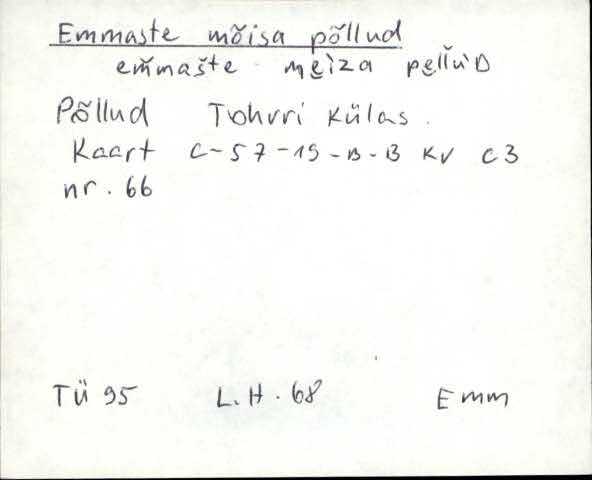 Emmaste mõisa põllud
em̆mašte mei̬za pe̬l̆lùD
Põllud Tohvri külas.
Kaart C-57-19-B-B KV C3
nr. 66
TÜ 95 L.H. 68 Emm